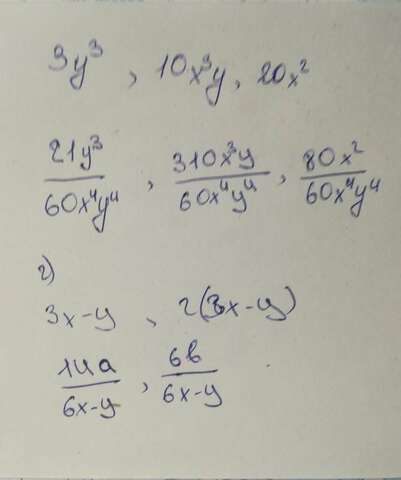 3y³, 10x³y, 20x²
21y³/60x⁴y⁴, 310x³y/60x⁴y⁴, 80x²/60x⁴y⁴
г)
3x-y, 2(3x-y)
14a/6x-y, 6b/6x-y